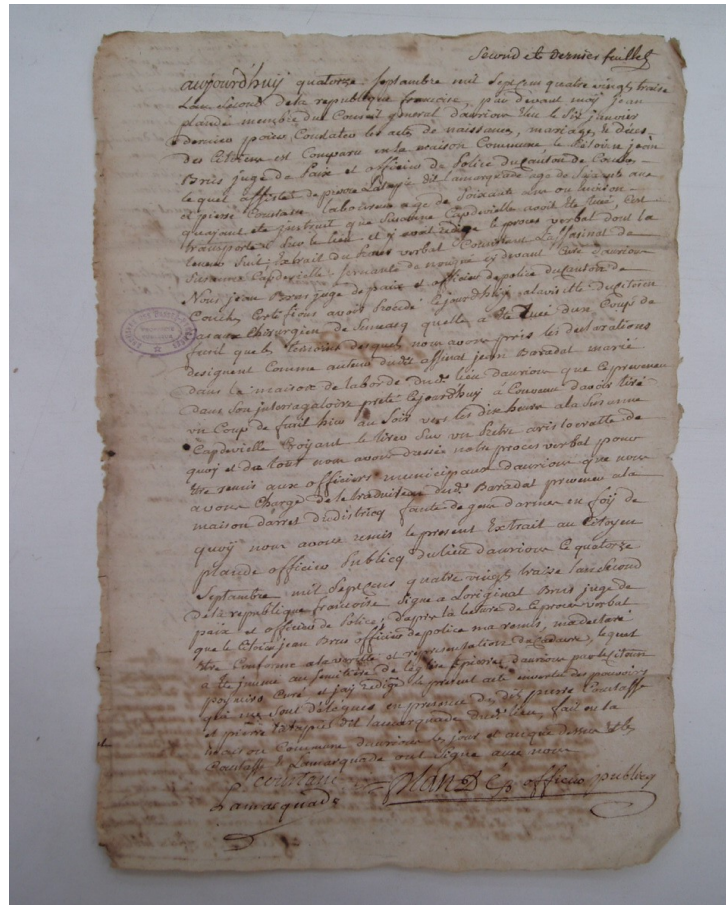 Second et dernier feuillet
aujourd'huy quatorze septembre mil sept cens quatre vingt traise
L'an second de la republique francoise, par devant moy jean
plandé membre du Conseil general d'auriou Elu le Six janvier
dernier pour Constater les actes de naissance, mariage & décès
des Citoiens est Comparu en la maison Commune le Citoien jean
Brus juge de Paix et officier de Police du Canton de
le quel assisté de pierre dit lamarquade age de soixante ans
& pierre Constans laboureur age de soixante ans ou environ
quayant été instruit que Susanne Capdevielle avoit été tuée, s'est
transporté sur le lieu et y avoit redigé le proces verbal dont la
teneur suit, Extrait du verbal Constatant L'assasinat de
Susanne Capdevielle servante de cy devant Curé dauriou
Nous jean Brus juge de paix et officier de police du Canton de
Certifions avoir procédé Cejourd'huy a la visite du
Chirurgien de Simacq quelle a été tuée dun Coup de
fusil que les temoins desquels nous avons pris les declarations
designent Comme auteur dudt assasinat jean Baradat marié
dans la maison de laborde dudt lieu dauriou que ce prevenu
dans son interrogatoire preté Cejourdhuy a Convenu davoir tiré
un Coup de fusil hier au Soir vers les dix heures a la Susanne
Capdevielle Croyant le tirer sur un Pretre aristocratte de
quoy et du tout nous avons dressé notre proces verbal pour
Etre remis aux officiers municipaux dauriou que nous
avons Chargé de traduire ledt Baradat prevenu a la
maison darret du district faute de gens darmes en foy de
quoy nous avons remis le present Extrait au Citoyen
plande officier Publicq du lieu dauriou Ce quatorze
Septembre mil sept cens quatre vingt traize lan Second
de la republique francoise Signé a Loriginal Brus juge de
paix et officier de Police, d'apres la lecture de Ce proces verbal
que le Citoien jean Brus officier de police ma remis, ma declaré
Etre Conforme a la verité et representation du Cadavre, lequel
a été inhumé au semitiere de leglise dauriou par le Citoien
Curé et jay redigé le present acte en vertu des pouvoirs
qui me sont délégués en presence desdits pierre
et pierre dit lamarquade dudt lieu, fait en la
maison Commune dauriou les jour et an que dessus & les
& Lamarquade ont signé avec nous
Constans
Lamarquade Plandé officier publicq